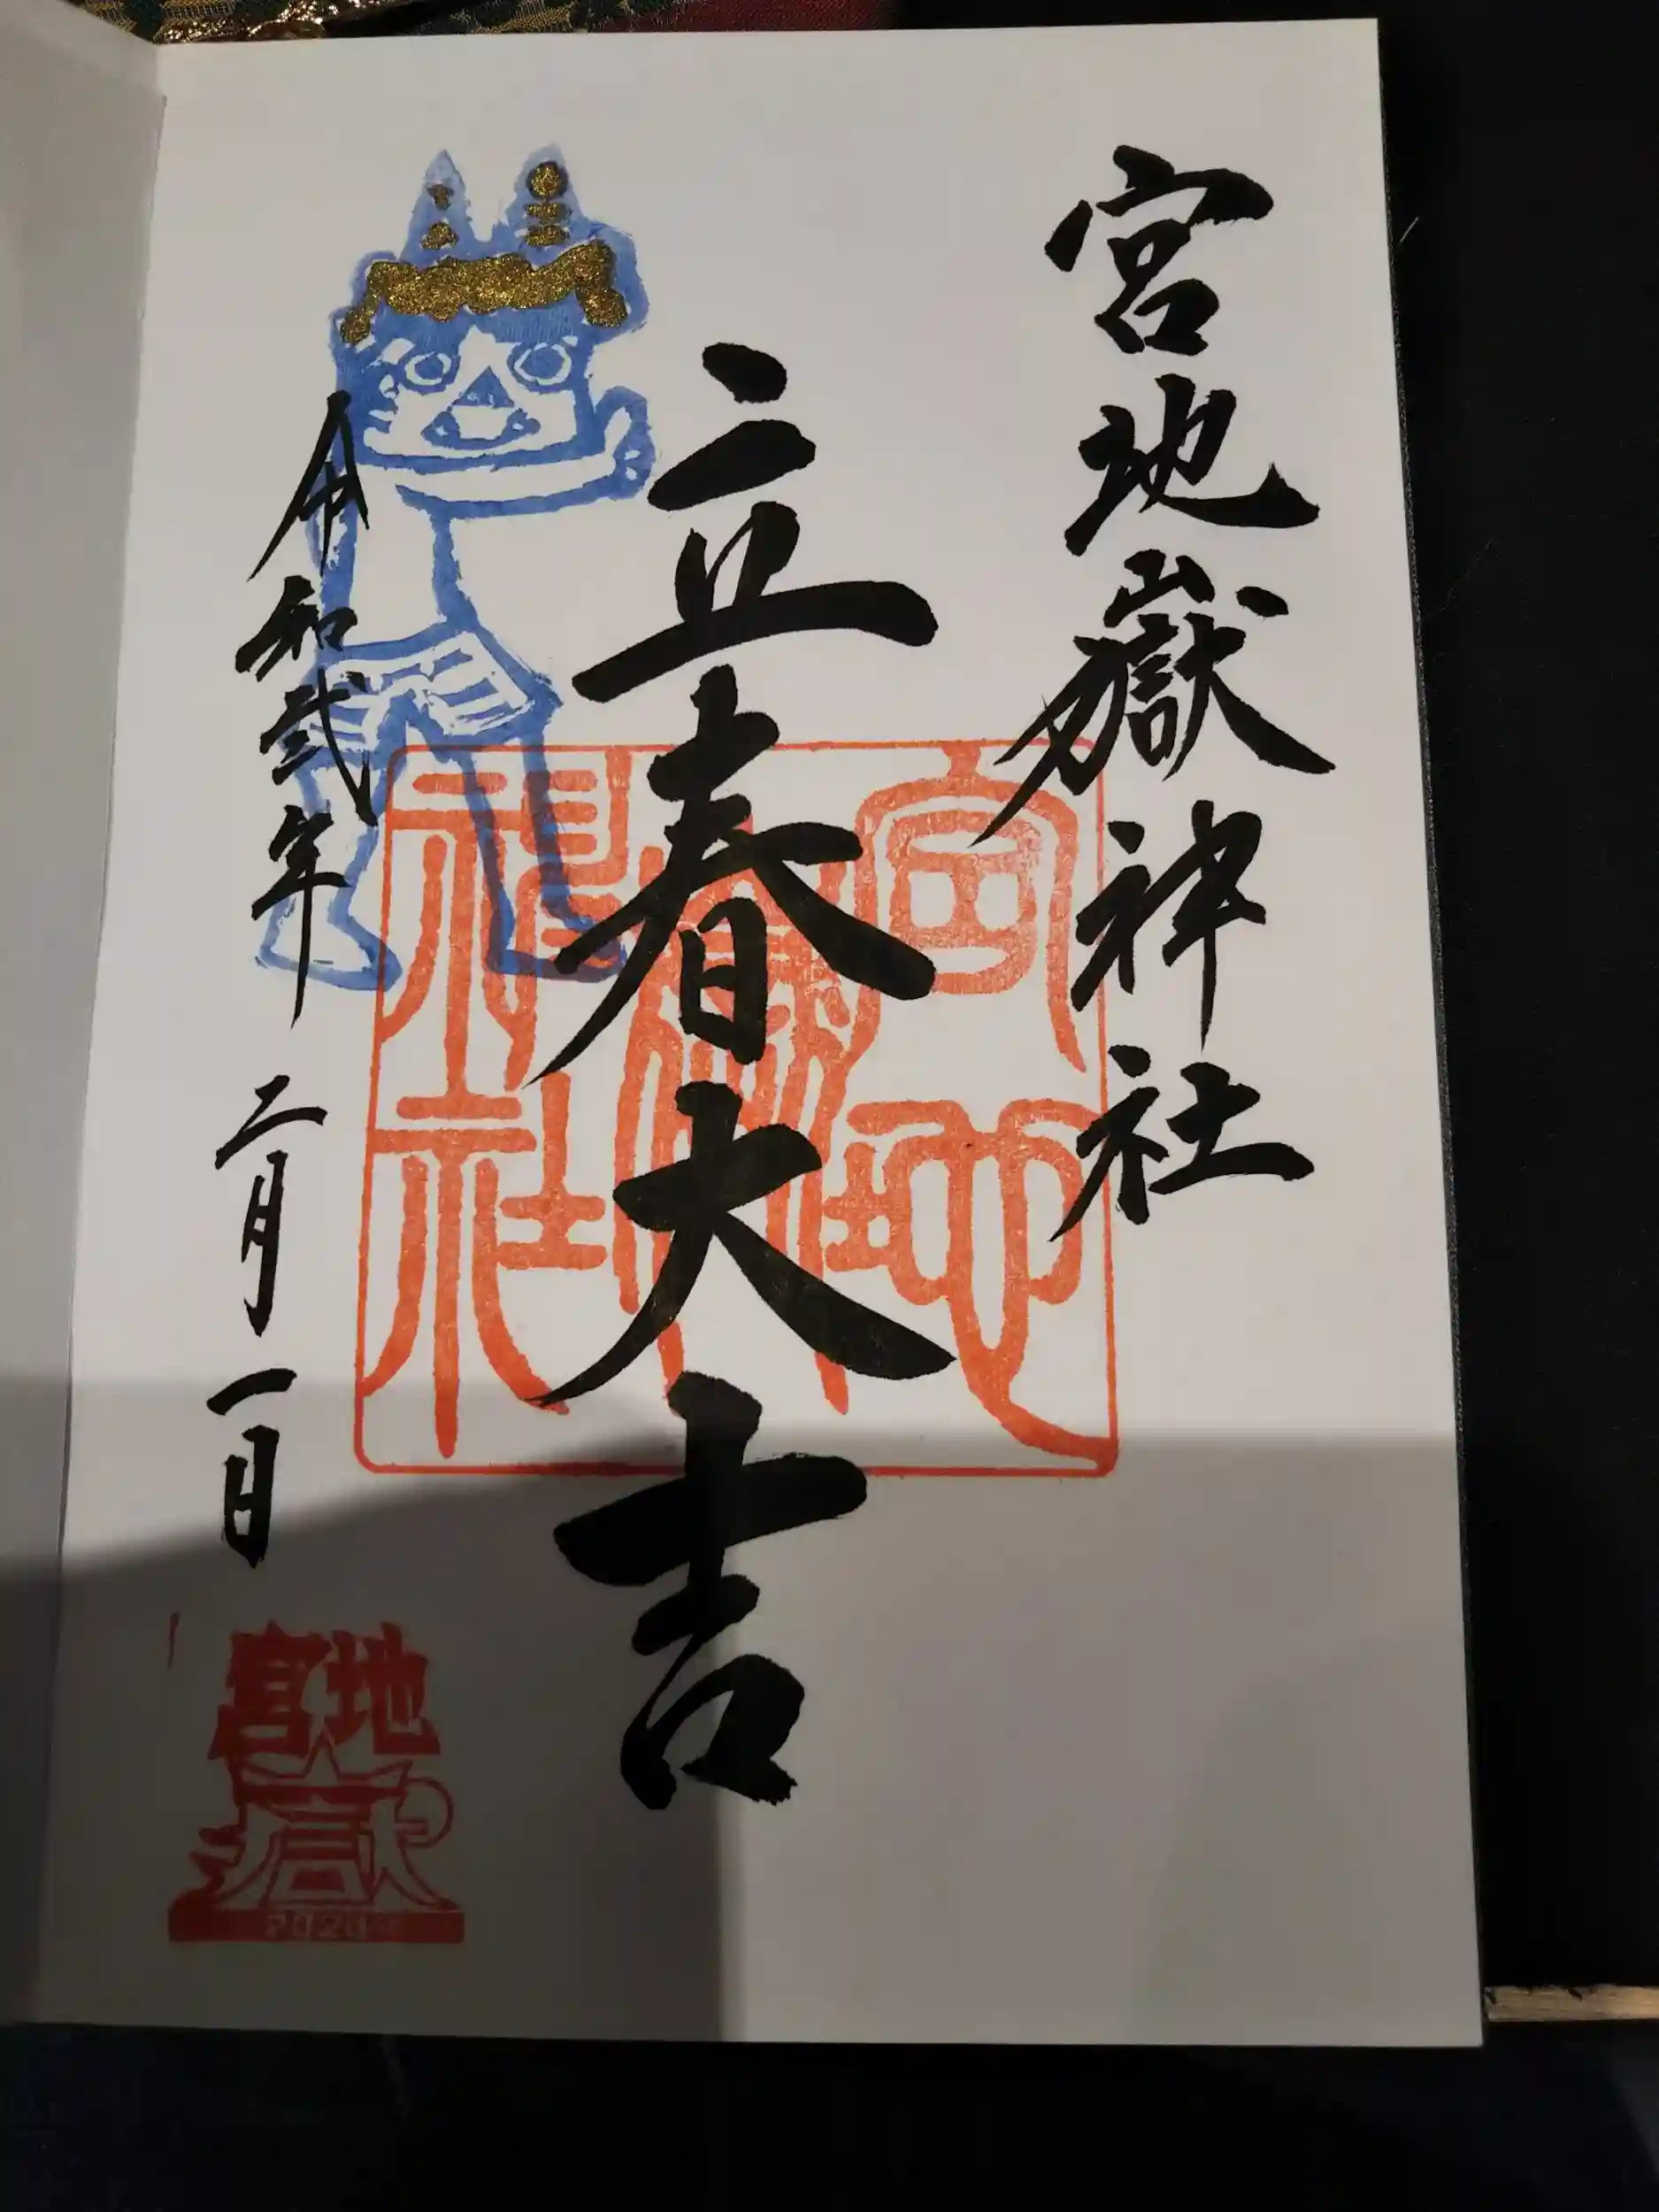 宮地嶽神社
立春大吉
令和弐年二月一日
宮地嶽神社
宮地
嶽
2020